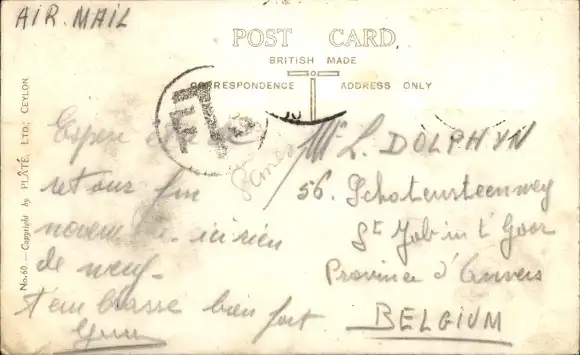 AIR MAIL
POST CARD
BRITISH MADE
CORRESPONDENCE ADDRESS ONLY
No. 60 — Copyright by PLÂTÉ, LTD., CEYLON.
retour fin
ici rien
de neuf.
t'embrasse bien fort
Mr L. DOLPHYN
56. Schotensteenweg
St Job in t' Goor
Province d'Anvers
BELGIUM